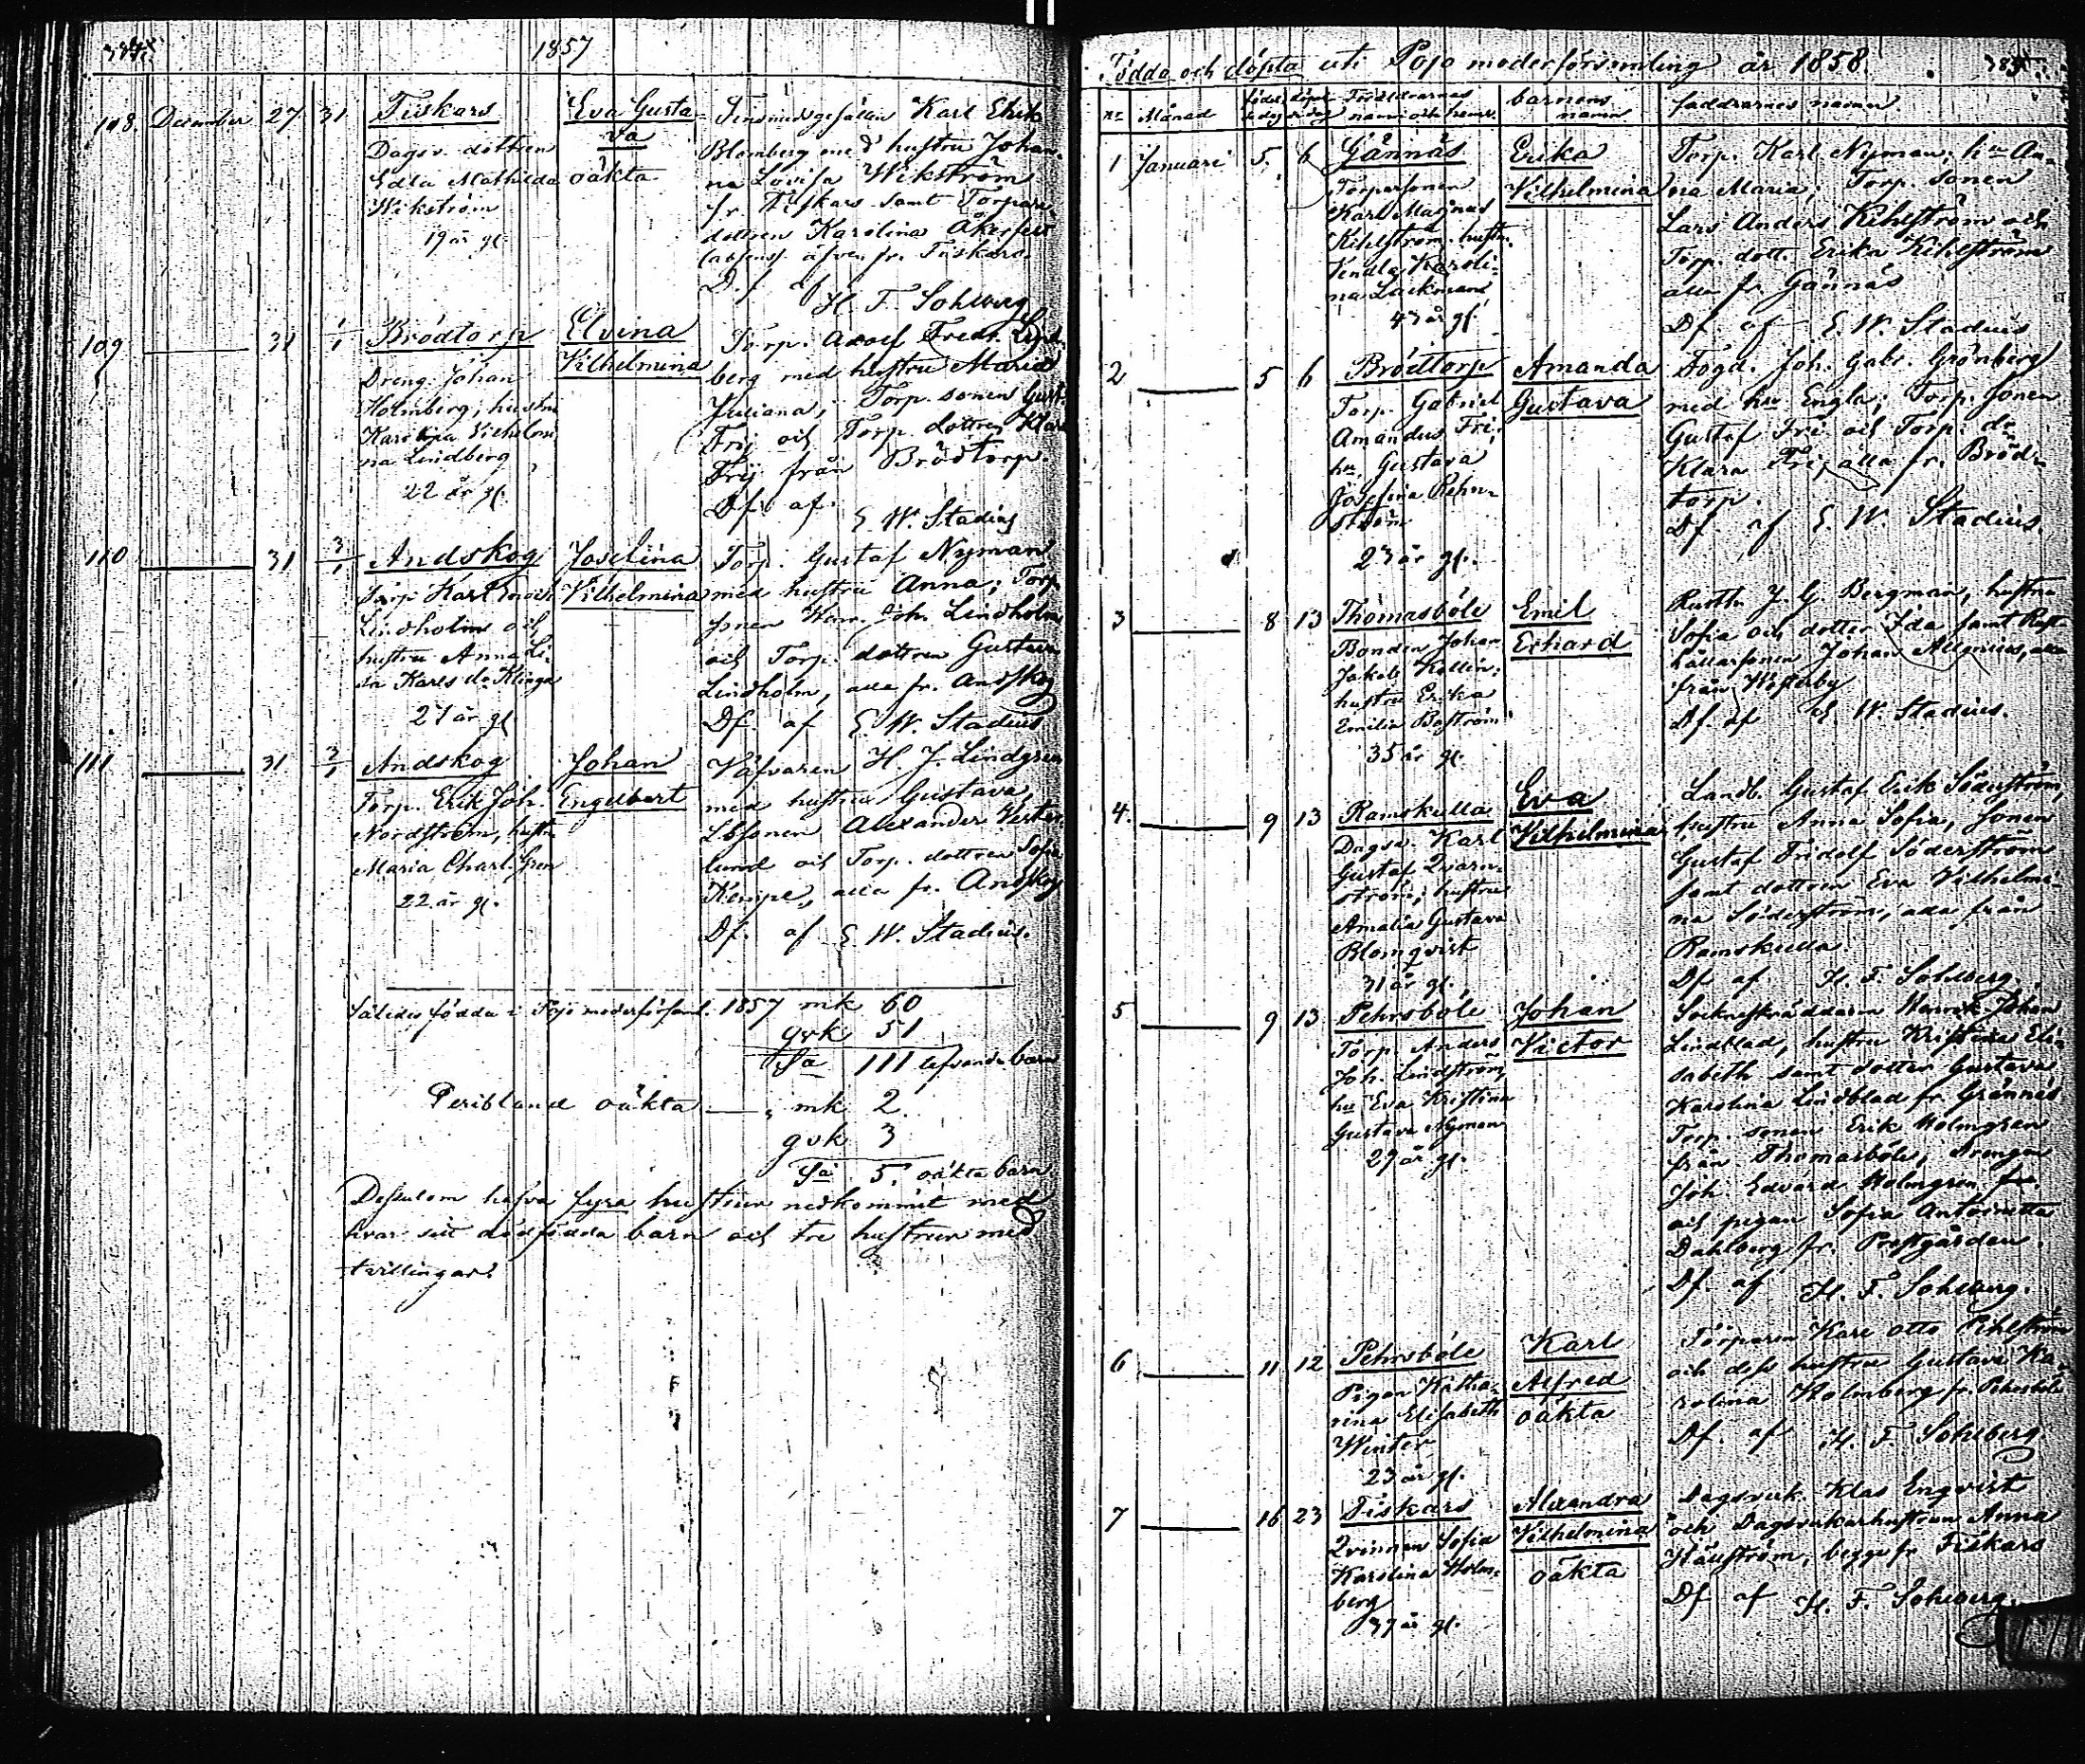 1857
108. December 27 31 Fiskars
Dagsv. dottren
Edla Mathilda
Wikström
19 år gl.
Eva Gusta-
va
oäkta
Finsmedsgesällen Karl Ehrik
Blomberg med hustru Johan-
na Lovisa Wikström
fr. Fiskars samt Torpare
dottren Karolina Åkerfelt
(absens) äfven fr. Fiskars.
D.f. af
H. F. Sohlberg
109 31 1/1 Brödtorp
Dreng. Johan
Holmberg, hustru
Karolina Vilhelmi
na Lindberg
22 år gl.
Elvina
Vilhelmina
Torp. Adolf Fredr. Lind-
berg med hustru Maria
Juliana, Torp. sonen Gust.
Frij och Torp. dottren Klara
Frij från Brödtorp.
Df. af.
E. W. Stadius
110 31 3/1 Andskog
Torp. Karl
Lindholm och
hustru Anna Li-
sa Karls dr Klinga
27 år gl.
Joselina
Vilhelmina
Torp. Gustaf Nyman
med hustru Anna; Torp.
sonen Joh. Lindholm
och Torp. dottren Gustava
Lindholm, alla fr. Andskog
Df. af E. W. Stadius
111 31 3/1 Andskog
Torp. Erik Joh.
Nordström, hustru
Maria Charl. Gren
22 år gl.
Johan
Engelbert
Väfvaren H. J. Lindgren
med hustru Gustava
Lbsonen Alexander Vester
lund och Torp. dottren Sofia
Kempe, alla fr. Andskog
Df. af E. W. Stadius.
Således födda i Pojo moderförsaml. 1857 mk 60
qvk 51
Sa 111 lefvande barn
Deribland oäkta mk 2
qvk 3
Sa 5. oäkta barn
Dessutom hafva fyra hustrur nedkommit med
hvar sitt dödfödda barn och tre hustrur med
tvillingar.
Födda och döpta uti Pojo moderförsamling år 1858. 385.
No Månad födelsedag döpelsedag Föräldrarnes namn och hemv. barnens namn faddrarnes namn
1 Januari 5. 6 Gännäs
Torparsonen
Karl Magnus
Kihlström hustru
Vendla Karoli-
na Lackman
43 år gl.
Erika
Vilhelmina
Torp. Karl Nyman, hu An-
na Maria; Torp. sonen
Lars Anders Kihlström och
Torp. dott. Erika Kihlström
alla fr. Gännäs
Df. af E. W. Stadius
2 5 6 Brödtorp
Torp. Gabriel
Amandus Fri,
hu. Gustava
Josefina Rehn-
ström
23 år gl.
Amanda
Gustava
Fogd. Joh. Gabr. Grönberg
med hu Engla; Torp. sonen
Gustaf Fri och Torp. dr
Klara Fri, alla fr. Bröd-
torp.
Df. af E. W. Stadius.
3 8 13 Thomasböle
Bonden Johan
Jakob Kellin
hustru Erika
Emilia Boström
35 år gl.
Emil
Erhard
Rusth. J. G. Bergman, hustru
Sofia och dotter Ida samt Rust-
hållarsonen Johan Allenius, alla
från Westerby
Df. af E. W. Stadius.
4. 9 13 Ramskulla
Dagsv. Karl
Gustaf Qvarn-
ström; hustru
Amalia Gustava
Blomqvist
31 år gl.
Eva
Vilhelmina
Landb. Gustaf Erik Söderström,
hustru Anna Sofia, sonen
Gustaf Fridolf Söderström
samt dottren Eva Vilhelmi-
na Söderström, alla från
Ramskulla.
Df. af H. F. Sohlberg.
5 9 13 Pehrsböle
Torp. Anders
Joh. Lindström,
hu Eva Kristina
Gustava Nyman
29 år gl.
Johan
Victor
Sockneskräddaren Henrik Johan
Lindblad, hustru Kristina Eli-
sabeth samt dotter Gustava
Karolina Lindblad fr. Grännäs
Torp. sonen Erik Holmgren
från Thomasböle, Drengen
Joh. Edvard Holmgren
och pigan Sofia Antoinetta
Dahlberg fr. Prestgården.
Df. af H. F. Sohlberg.
6 11 12 Pehrsböle
Pigan Katha-
rina Elisabeth
Winter
23 år gl.
Karl
Alfred
oäkta
Torparen Karl Otto Pihlström
och dess hustru Gustava Ka-
rolina Holmberg fr. Pehrsböle
Df. af H. F. Sohlberg
7 16 23 Fiskars
Qvinnan Sofia
Karolina Holm-
berg
37 år gl.
Alexandra
Vilhelmina
oäkta
Dagsverk. Klas Engvist
och Dagsverkarhustrun Anna
Häuström, begge fr. Fiskars
Df af H. F. Sohlberg.